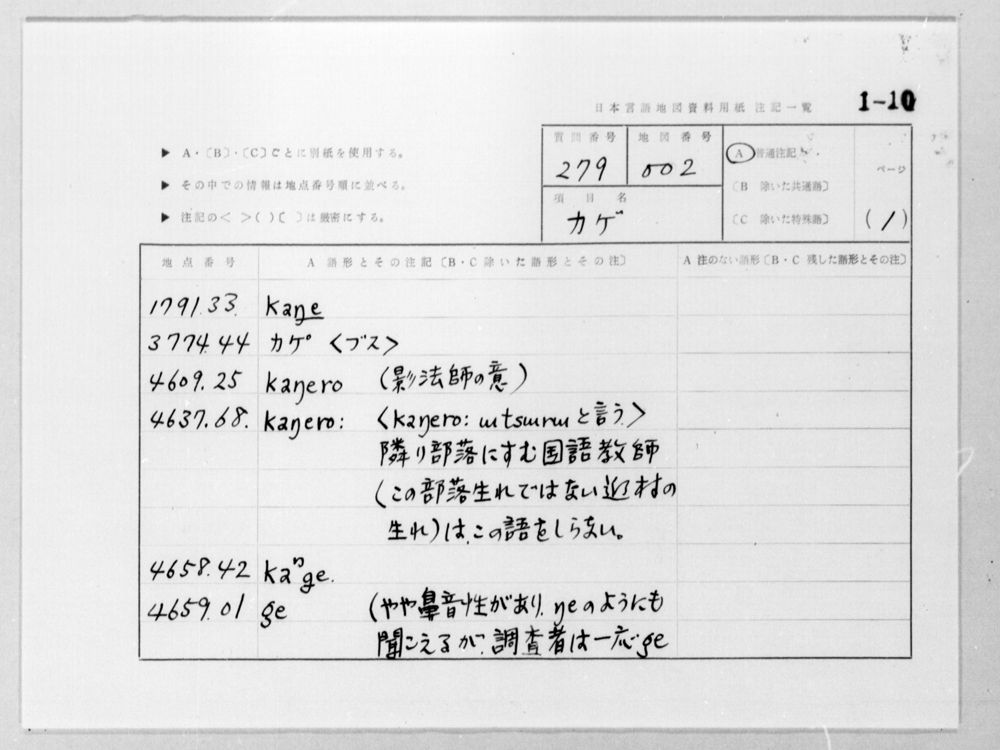 1-10
日本言語地図資料用紙 注記一覧
▶ A・〔B〕・〔C〕ごとに別紙を使用する。
▶ その中での情報は地点番号順に並べる。
▶ 注記の< >( )〔 〕は厳密にする。
質問番号 地図番号
279 002
項目名
カゲ
A 普通注記
〔B 除いた共通語〕
〔C 除いた特殊語〕
ページ
(1)
地点番号 A 語形とその注記〔B・C 除いた語形とその注〕 A 注のない語形〔B・C 残した語形とその注〕
1791.33. kaŋe
3774.44 カゲ <ブス>
4609.25 kaŋero (影法師の意)
4637.68. kaŋero: <kaŋero: ɯtsɯrɯと言う>
隣り部落にすむ国語教師
(この部落生れではない近村の
生れ)は、この語をしらない。
4658.42 kaⁿge.
4659.01 ge (やや鼻音性があり、ŋeのようにも
聞こえるが、調査者は一応ge